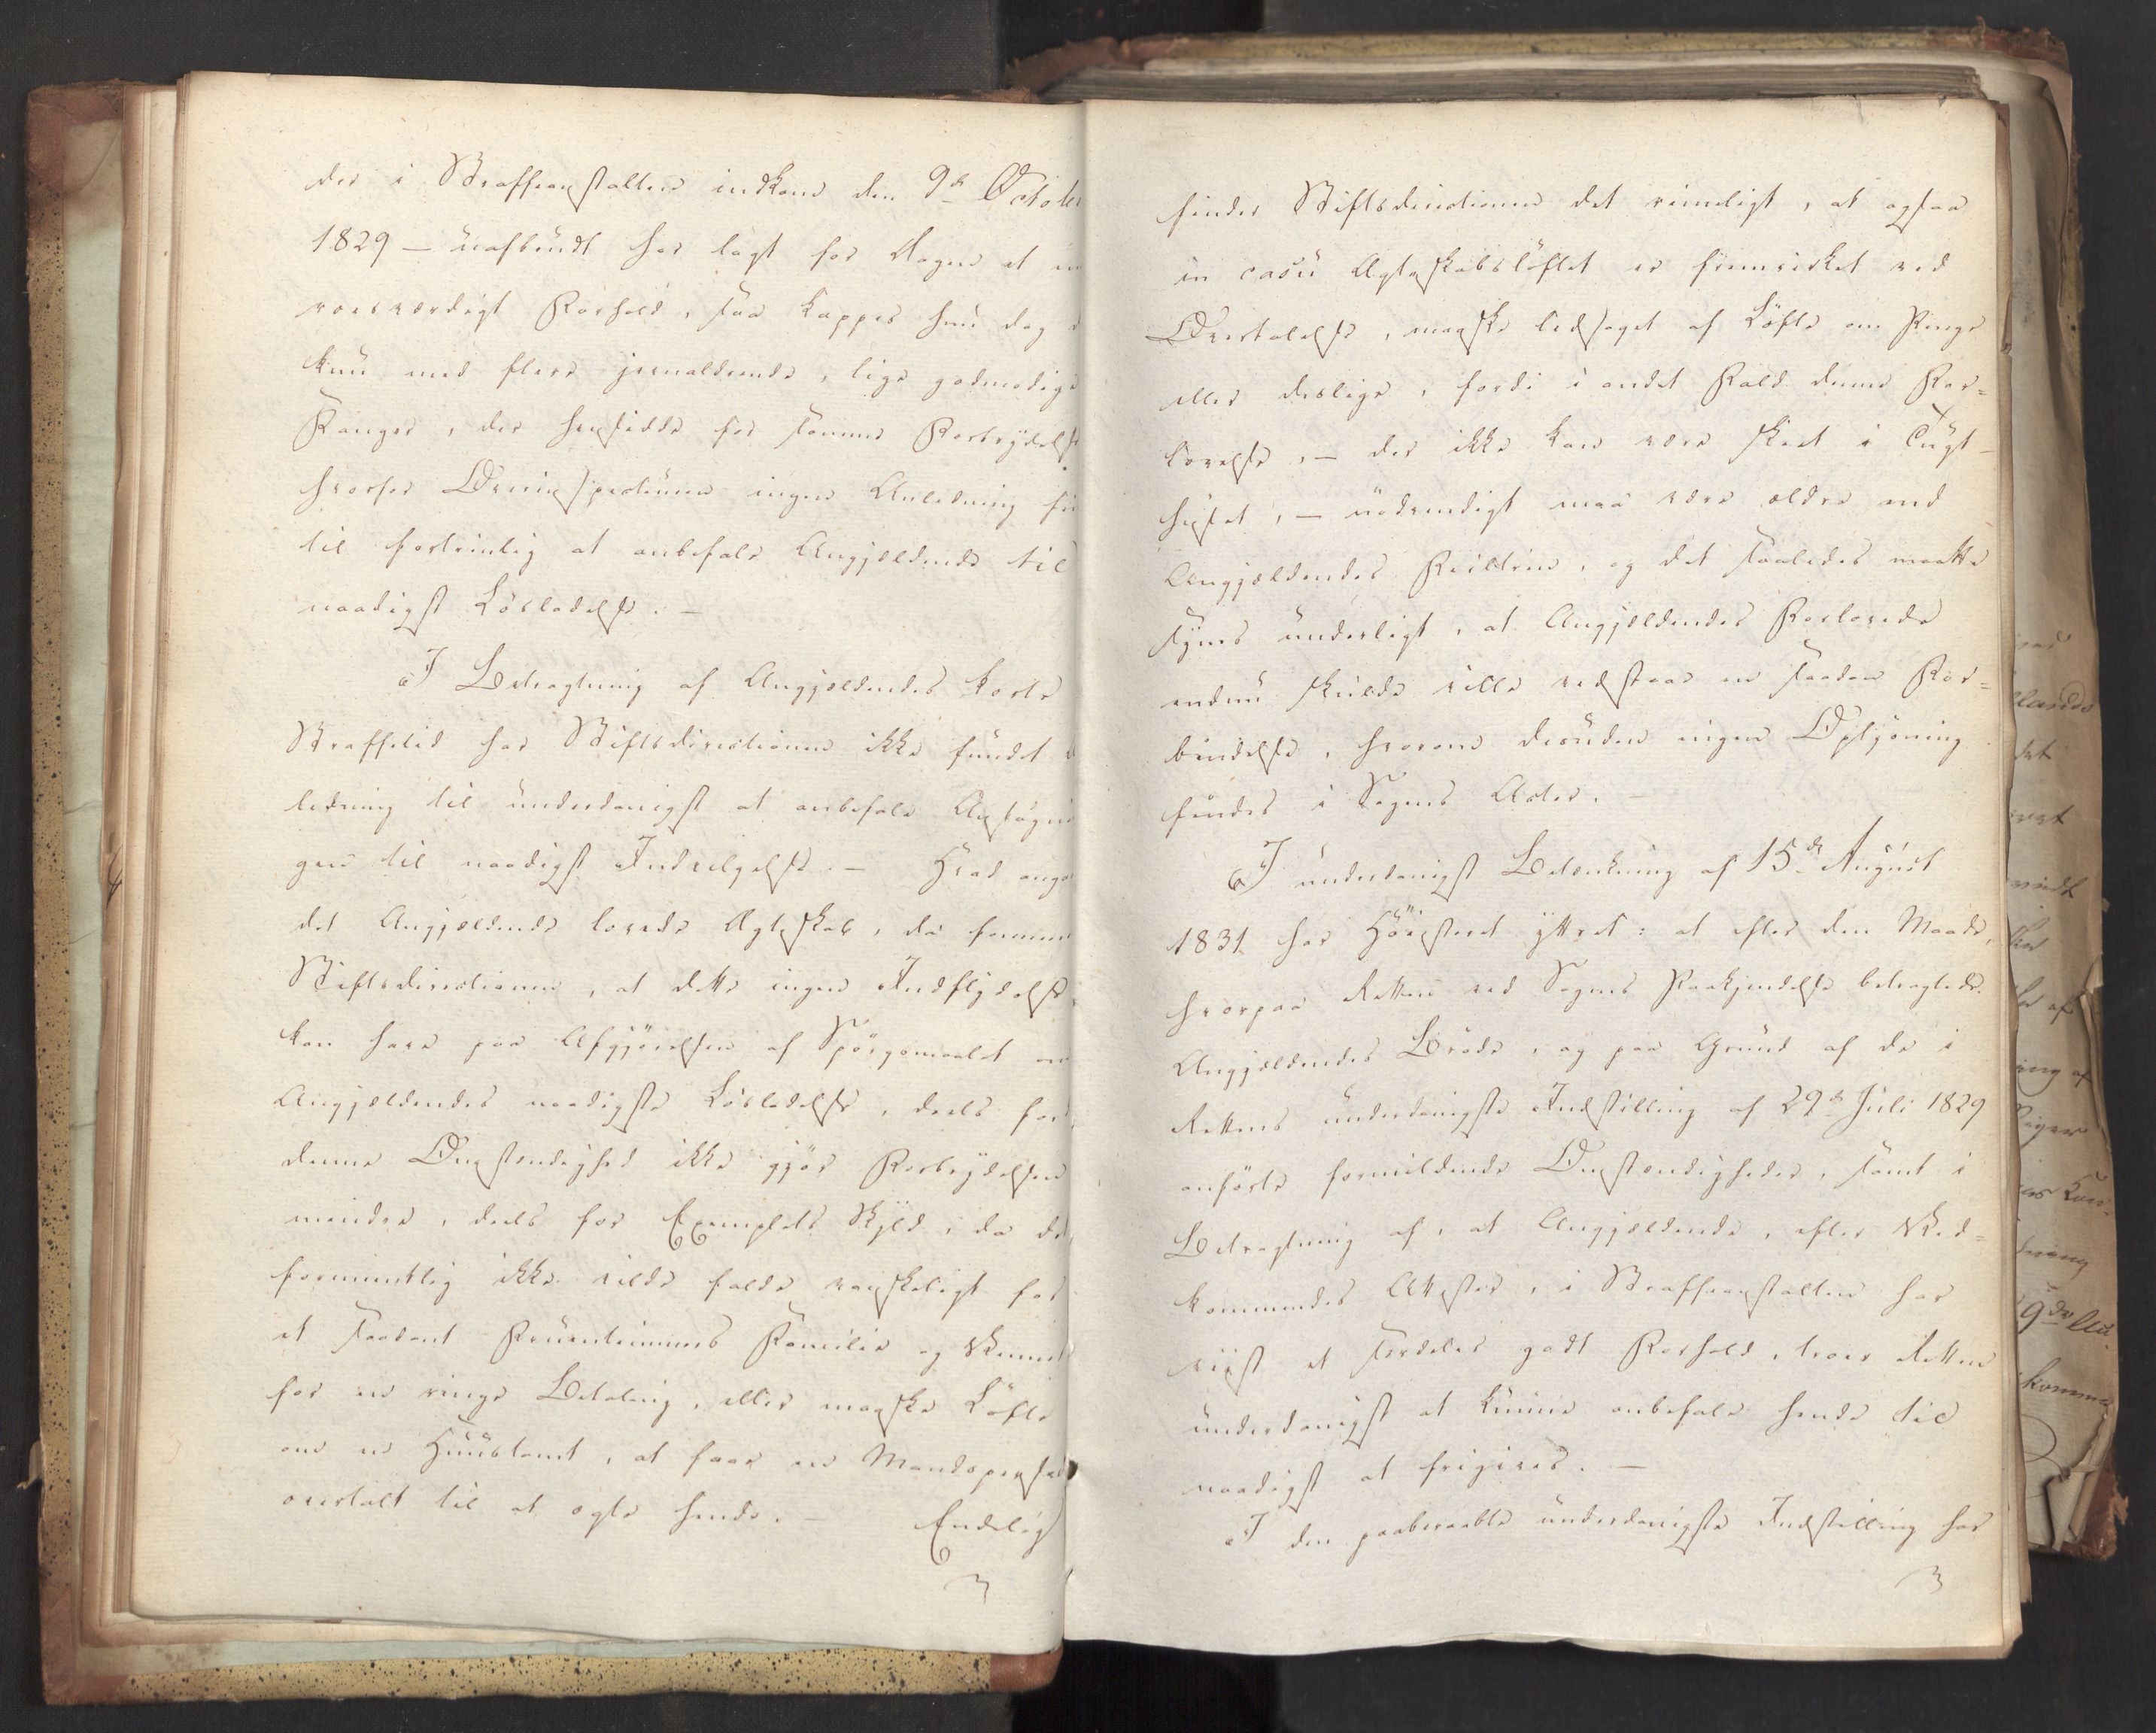 der i Straffeanstalten indkom den 9de October
1829 — uafbrudt har lagt for Dagen et
roesværdigt Forhold, saa kappes hun dog
kun med flere jevnaldrende, lige godmodige
Fanger, der hensidde for samme Forbrydelse
hvorfor Overinspectionen ingen Anledning
til fortrinlig at anbefale Angjeldende til
naadigst Løsladelse. —
I Betragtning af Angjeldendes korte
Straffetid har Stiftsdirectionen ikke fundet
ledning til underdanigst at anbefale Ansøgnin
gen til naadigst Indvilgelse. — Hvad
det Angjeldende lovede Ægteskab, da formener
Stiftsdirectionen, at dette ingen Indflydelse
kan have paa Afgjørelsen af Spørgsmaalet om
Angjeldendes naadigste Løsladelse, deels fordi
denne Omstændighed ikke gjør Forbrydelsen
mindre, deels for Exemplets Skyld, da det
formeentlig ikke vilde falde vanskeligt for
et saadant Fruentimmers Familie og Venner
for en ringe Betaling, eller maaske Løfte
om en Huustomt, at faae en Mandsperson
overtalt til at ægte hende. — Endelig
finder Stiftsdirectionen det rimeligt, at ogsaa
in casu Ægteskabsløftet er fremvirket ved
Overtalelse, maaske ledsaget af Løfte om Penge
eller deslige, fordi i andet Fald denne For=
lovelse, — der ikke kan være skeet i Tugt-
huset, — nødvendigt maa være ældre end
Angjeldendes Arrest, og det saaledes maatte
synes underligt, at Angjeldendes Forlovede
endnu skulde ville vedstaae en saadan For=
bindelse, hvorom desuden ingen Oplysning
findes i Sagens Acter. —
I underdanigst Betænkning af 15de August
1831 har Høiesteret yttret: at efter den Maade,
hvorpaa Retten ved Sagens Paakjendelse betragtede
Angjeldendes Brøde, og paa Grund af de i
Rettens underdanigste Indstilling af 29de Juli 1829
anførte formildende Omstændigheder, samt i
Betragtning af, at Angjeldende, efter Ved=
kommendes Attester, i Straffeanstalten har
viist et særdeles godt Forhold, troer Retten
underdanigst at kunne anbefale hende til
naadigst at frigives. —
I den paaberaabte underdanigste Indstilling har